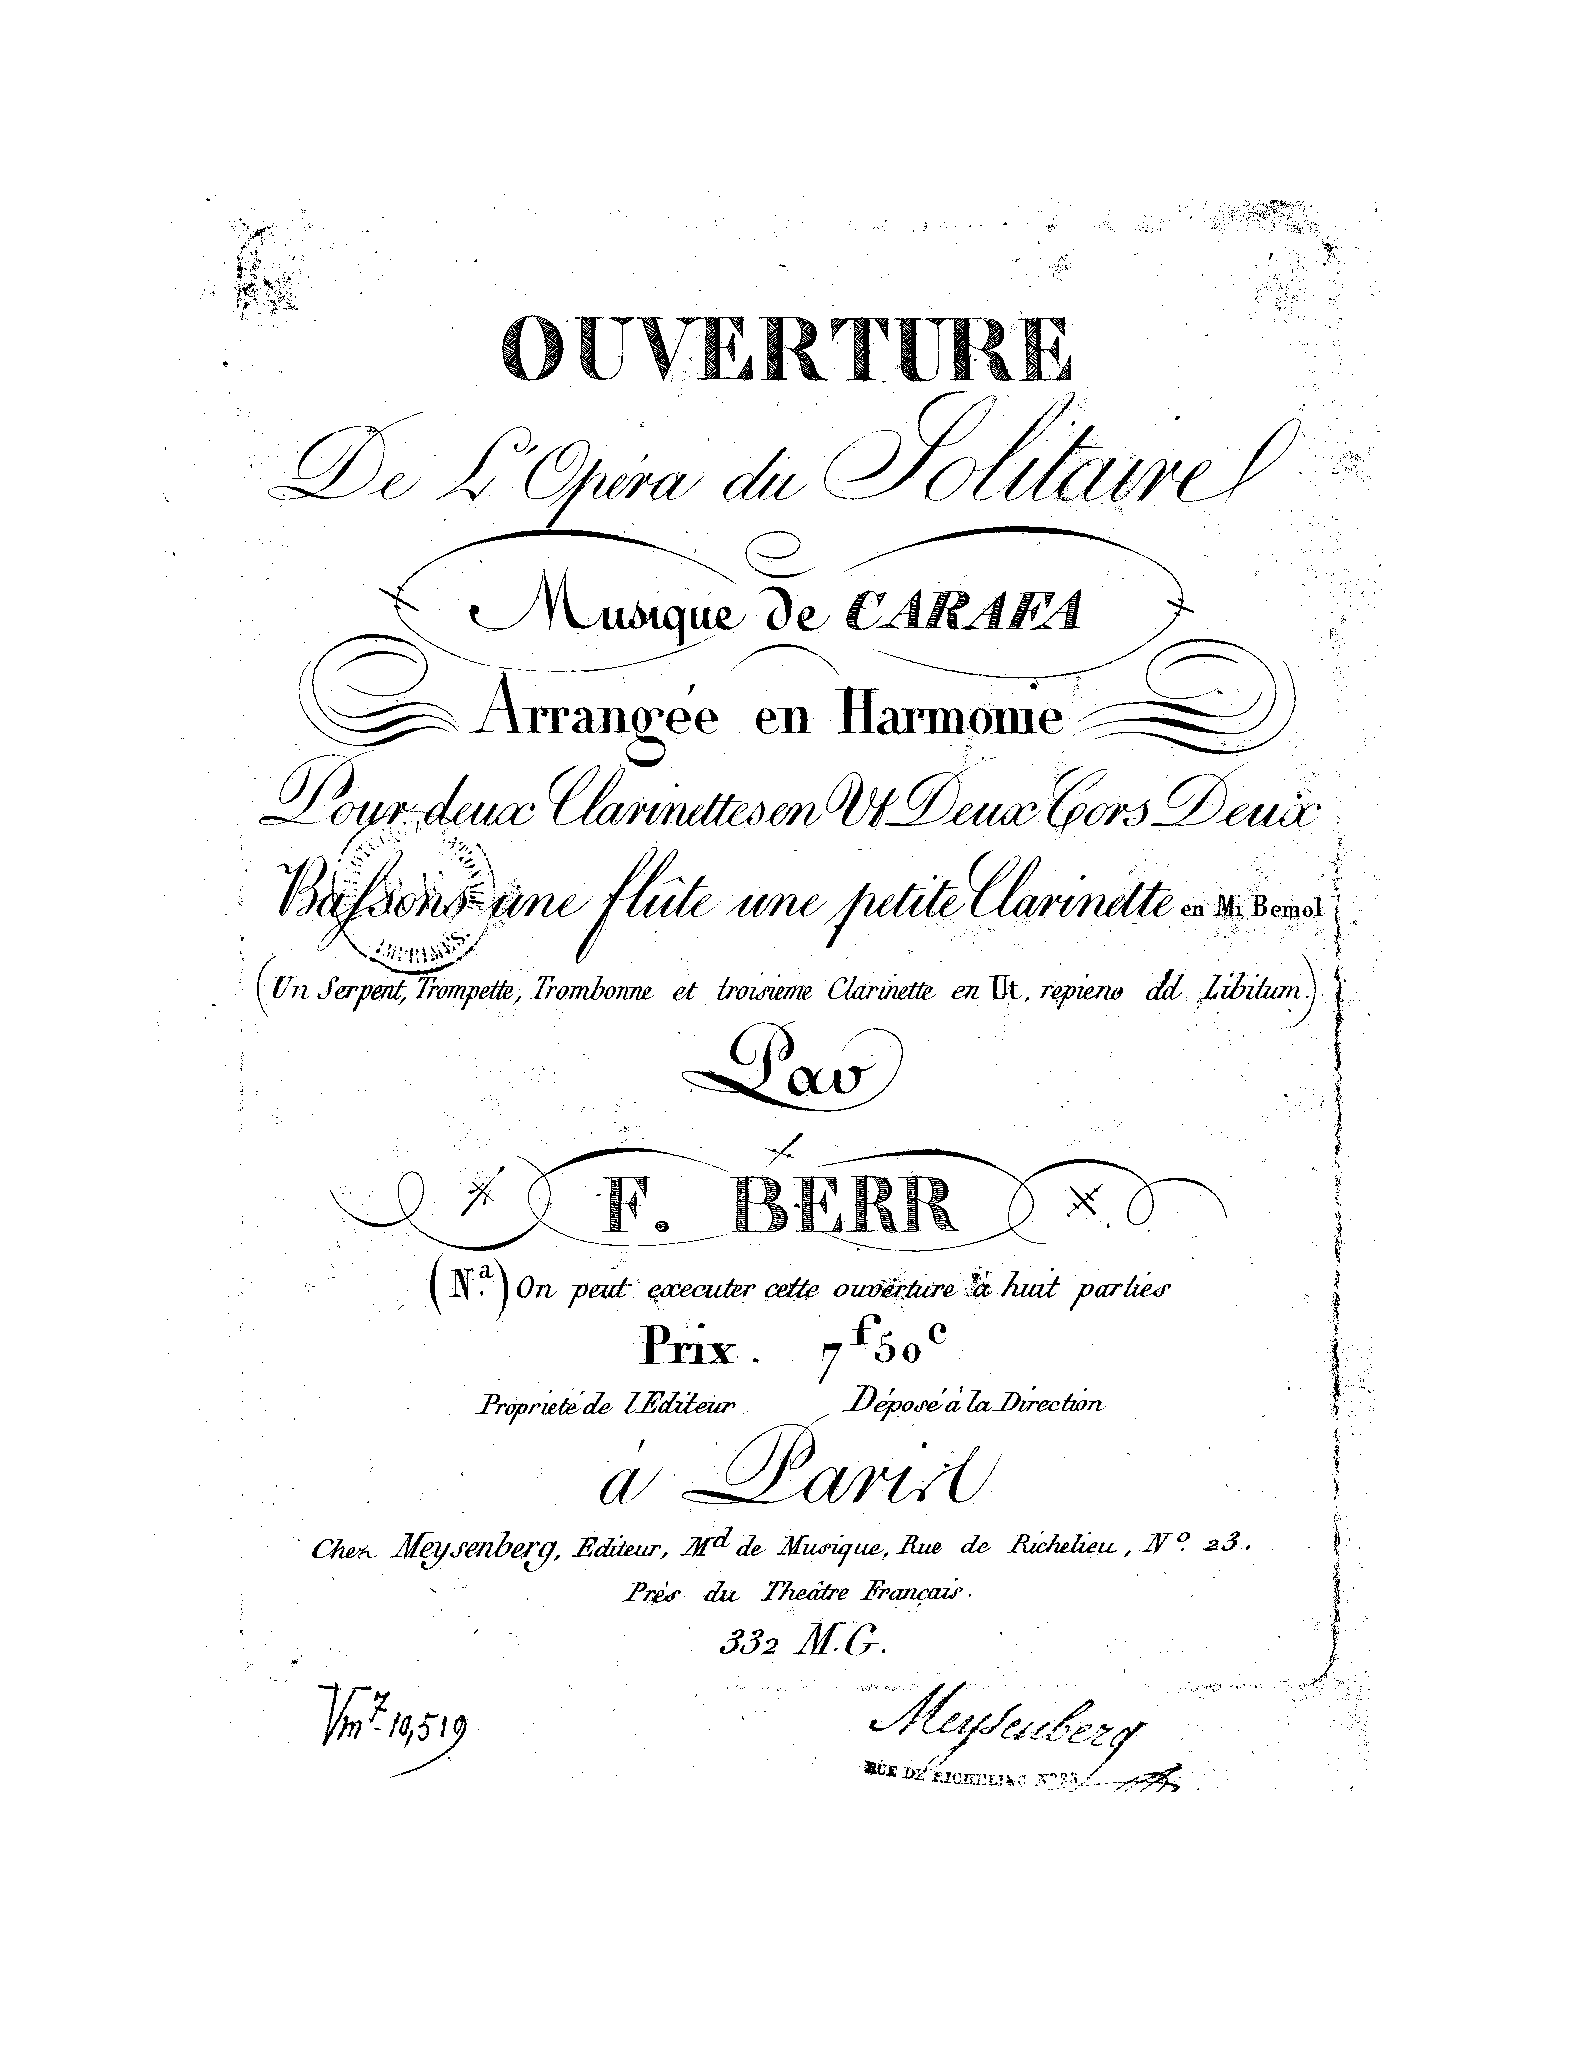 OUVERTURE
De L'Opéra du Solitaire
Musique de CARAFA
Arrangée en Harmonie
Pour deux Clarinettes en Ut Deux Cors Deux
Bassons une flûte une petite Clarinette en Mi Bemol
IMPRIMÉS.
(Un Serpent, Trompette, Trombonne et troisieme Clarinette en Ut, repieno ad Libitum.)
Par
F. BERR
(N.a) On peut executer cette ouverture à huit parties
Prix. 7f 50c
Propriété de l'Editeur Déposé à la Direction
à Paris
Chez Meysenberg, Editeur, Md de Musique, Rue de Richelieu, No. 23.
Près du Theâtre Français.
332 M.G.
Vm7. 10,519
Meysenberg
RUE DE RICHELIEU No 23